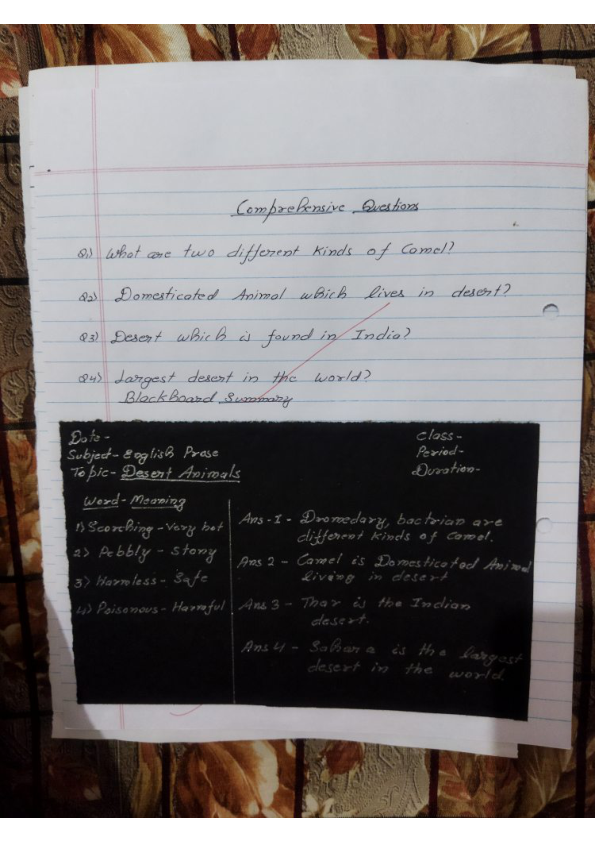 Comprehensive Questions
Q1) What are two different kinds of Camel?
Q2) Domesticated Animal which lives in desert?
Q3) Desert which is found in India?
Q4) Largest desert in the world?
Blackboard Summary
Date-
Subject- English Prose
Topic- Desert Animals
Class-
Period-
Duration-
Word- Meaning
1) Scorching - Very hot
2) Pebbly - Stony
3) Harmless - Safe
4) Poisonous - Harmful
Ans-1- Dromedary, bactrian are
different kinds of Camel.
Ans 2 - Camel is Domesticated Animal
living in desert
Ans 3 - Thar is the Indian
desert.
Ans 4 - Sahara is the largest
desert in the world